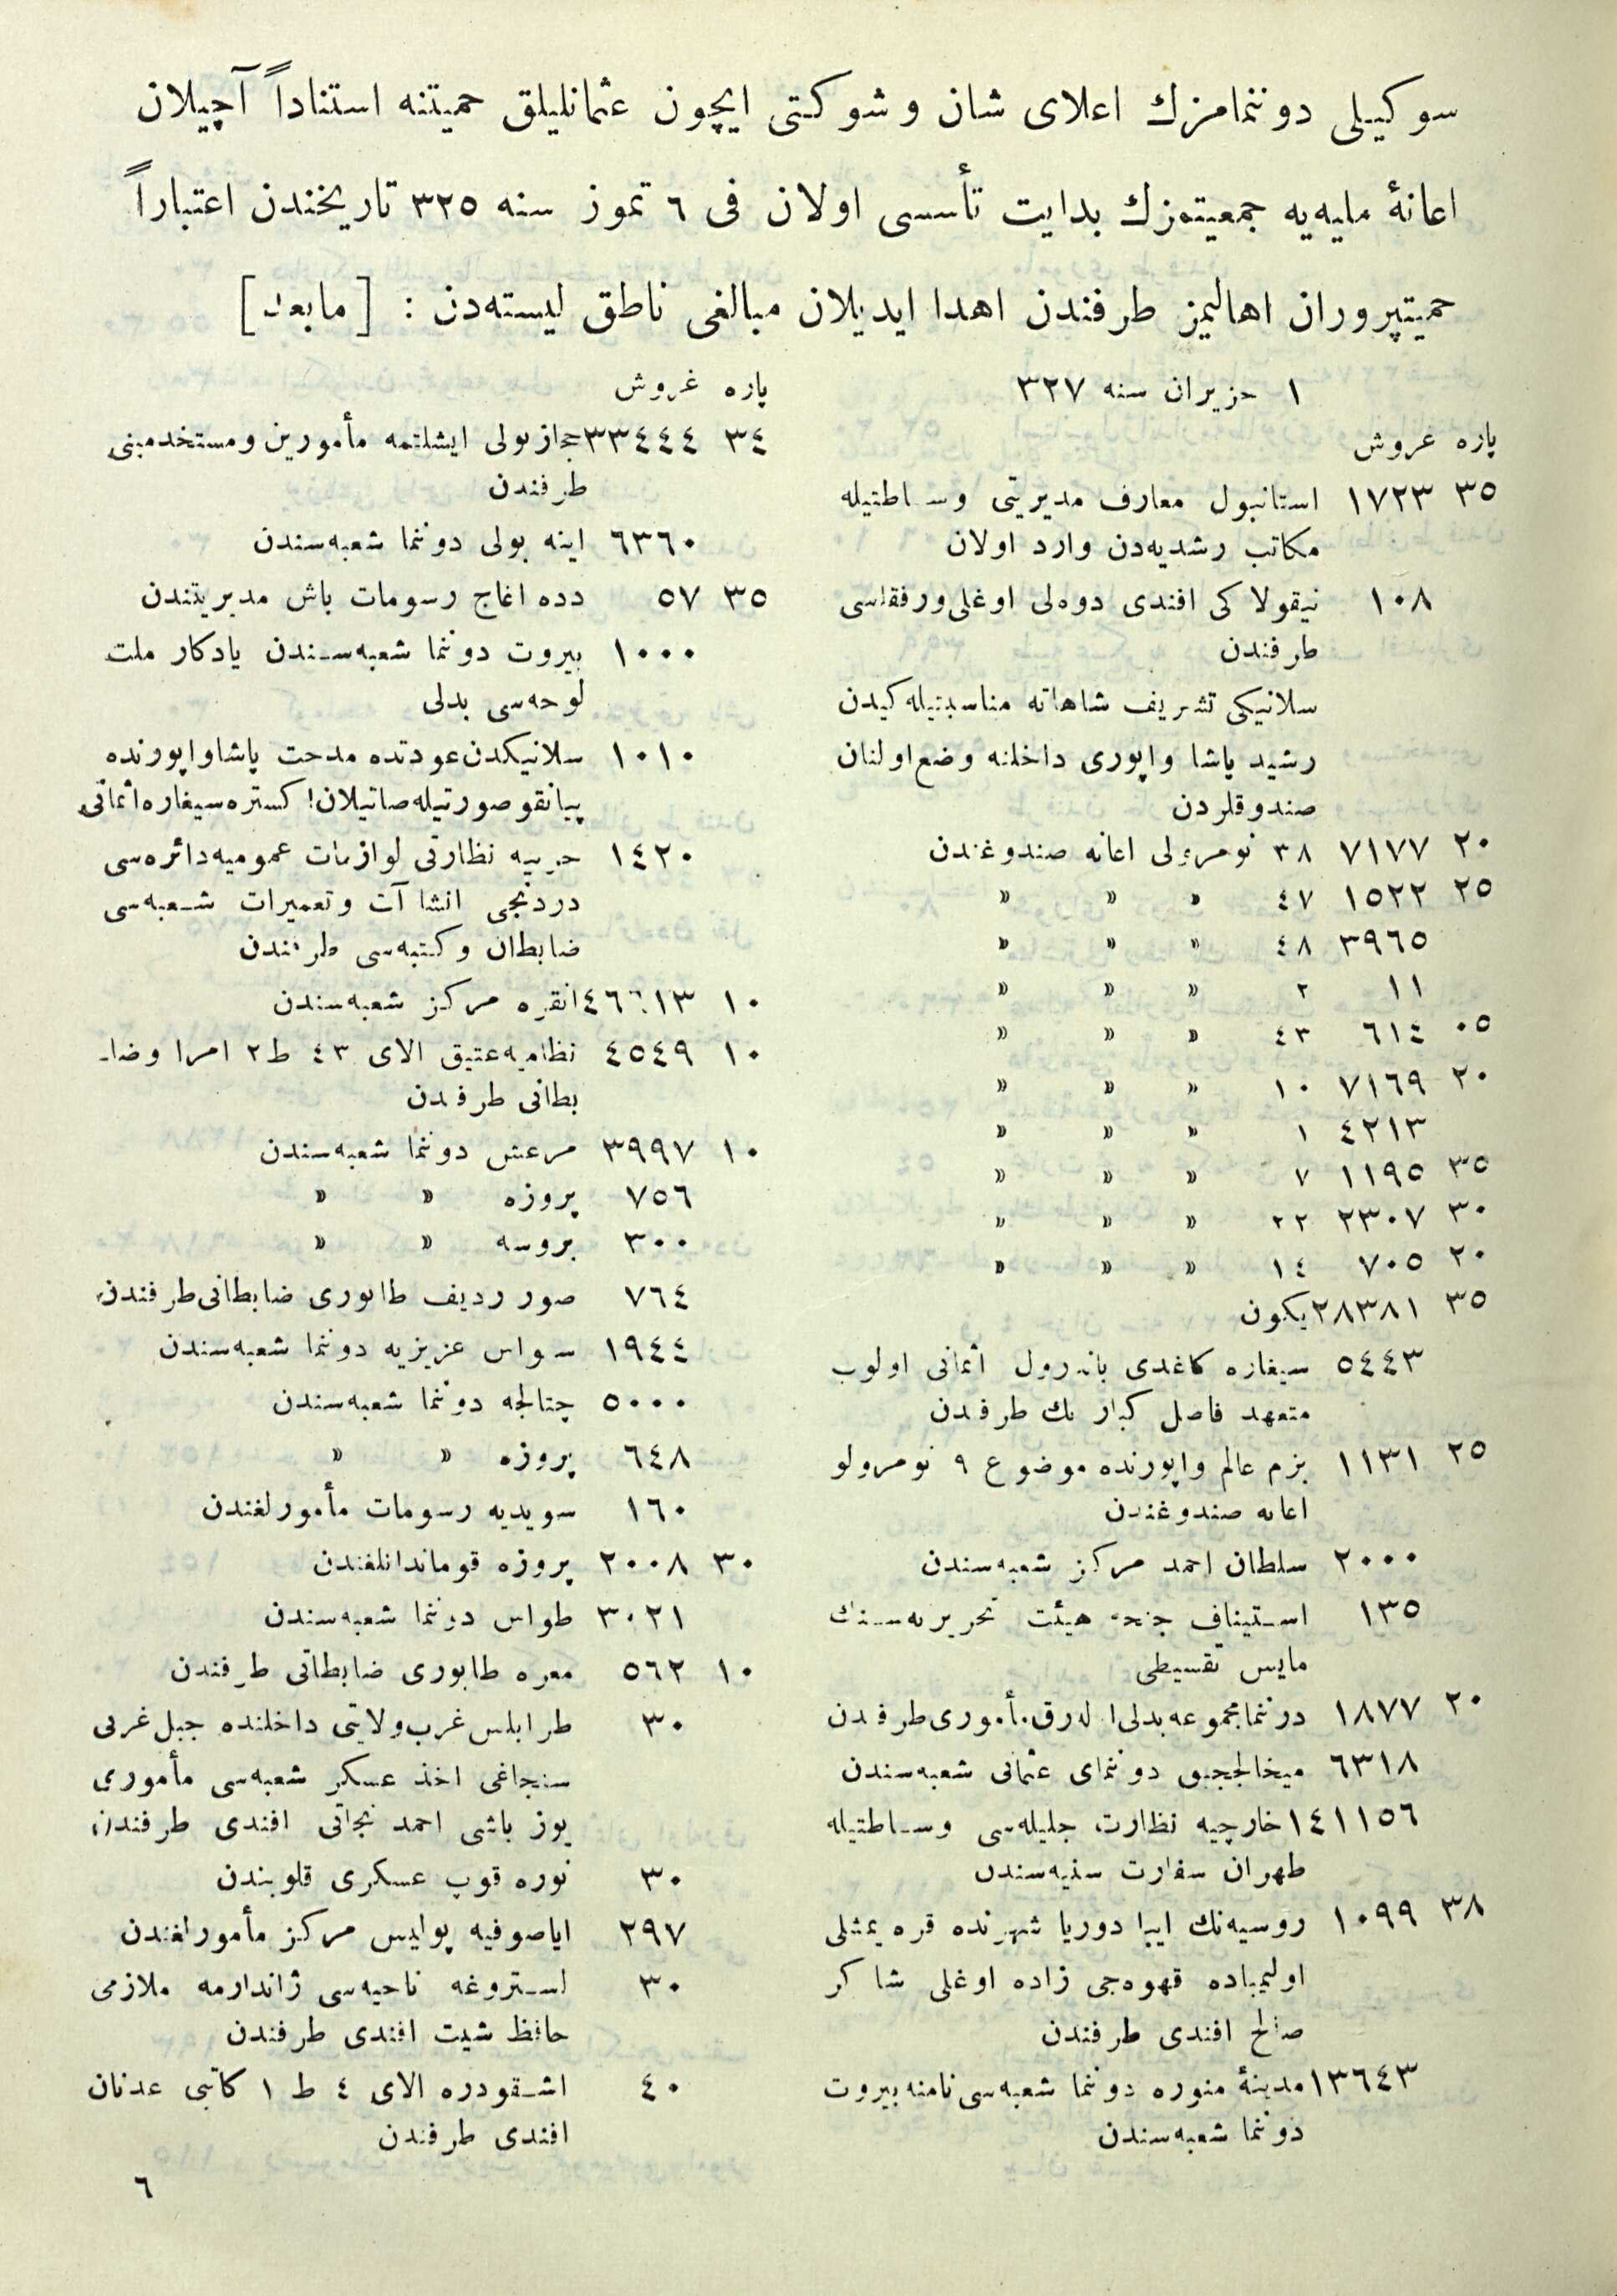 سوكيلى دوننمامزك اعلاى شان وشوكتى ايچون عثمانليلق حميتنه استناداً آچيلان
اعانهٔ مليه‌يه جمعيتمزك بدايت تأسسى اولان فى ٦ تموز سنه ٣٢٥ تاريخندن اعتباراً
حميتپروران اهاليمز طرفندن اهدا ايديلان مبالغى ناطق ليسته‌دن : [ مابعد ]
١ حزيران سنه ٣٢٧
پاره غروش
٣٥ ١٧٢٣ استانبول معارف مديريتى وساطتيله
مكاتب رشديه‌دن وارد اولان
١٠٨ نيقولاكى افندى دوه‌لى اوغلى ورفقاسى
طرفندن
سلانيكى تشريف شاهانه مناسبتيله كيدن
رشيد پاشا واپورى داخلنه وضع اولنان
صندوقلردن
٢٠ ٧١٧٧ ٣٨ نومرولى اعانه صندوغندن
٢٥ ١٥٢٢ ٤٧ » » »
٣٩٦٥ ٤٨ » » »
١١ ٢ » » »
٠٥ ٦١٤ ٤٣ » » »
٢٠ ٧١٦٩ ١٠ » » »
٤٢١٣ ١ » » »
٣٥ ١١٩٥ ٧ » » »
٣٠ ٢٣٠٧ ٢٢ » » »
٢٠ ٧٠٥ ١٤ » » »
٣٥ ٢٨٣٨١ يكون
٥٤٤٣ سيغاره كاغدى باندرول اثمانى اولوب
متعهد فاضل كبار بك طرفندن
٢٥ ١١٣١ بزم عالم واپورنده موضوع ٩ نومرولو
اعانه صندوغندن
٢٠٠٠ سلطان احمد مركز شعبه‌سندن
١٣٥ استيناف جنحه هيئت تحريريه‌سنك
مايس تقسيطى
٢٠ ١٨٧٧ دوننما مجموعه بدلى اوله‌رق مأمورى طرفندن
٦٣١٨ ميخاليججيق دوننماى عثمانى شعبه‌سندن
١٤١١٥٦ خارجيه نظارت جليله‌سى وساطتيله
طهران سفارت سنيه‌سندن
٣٨ ١٠٩٩ روسيه‌نك ايبا دوريا شهرنده قره يمشلى
اوليمباده قهوه‌جى زاده اوغلى شاكر
صالح افندى طرفندن
١٣٦٤٣ مدينهٔ منوره دوننما شعبه‌سى نامنه بيروت
دوننما شعبه‌سندن
پاره غروش
٣٤ ٣٣٤٤٤ حجازيولى ايشلتمه مأمورين ومستخدمينى
طرفندن
٦٣٦٠ اينه بولى دوننما شعبه‌سندن
٣٥ ٥٧ دده اغاج رسومات باش مديريتندن
١٠٠٠ بيروت دوننما شعبه‌سندن يادكار ملت
لوحه‌سى بدلى
١٠١٠ سلانيكدن عودتده مدحت پاشا واپورنده
پيانقو صورتيله صاتيلان اكستره سيغاره اثمانى
١٤٢٠ حربيه نظارتى لوازمات عموميه دائره‌سى
دردنجى انشاآت وتعميرات شعبه‌سى
ضابطان وكتبه‌سى طرفندن
١٠ ٤٦٦١٣ انقره مركز شعبه‌سندن
١٠ ٤٥٤٩ نظاميه عتيق الاى ٤٣ ط ٢ امرا وضا-
بطانى طرفندن
١٠ ٣٩٩٧ مرعش دوننما شعبه‌سندن
٧٥٦ پروزه » »
٣٠٠ بروسه » »
٧٦٤ صور رديف طابورى ضابطانى طرفندن
١٩٤٤ سواس عزيزيه دوننما شعبه‌سندن
٥٠٠٠ چتالجه دوننما شعبه‌سندن
٦٤٨ پروزه » »
١٦٠ سويديه رسومات مأمورلغندن
٣٠ ٢٠٠٨ پروزه قوماندانلغندن
٣٠٢١ طواس دوننما شعبه‌سندن
١٠ ٥٦٢ معره طابورى ضابطانى طرفندن
٣٠ طرابلس غرب ولايتى داخلنده جبل غربى
سنجاغى اخذ عسكر شعبه‌سى مأمورى
يوزباشى احمد نجاتى افندى طرفندن
٣٠ نوره قوپ عسكرى قلوبندن
٢٩٧ اياصوفيه پوليس مركز مأمورلغندن
٣٠ استروغه ناحيه‌سى ژاندارمه ملازمى
حافظ شيت افندى طرفندن
٤٠ اشقودره الاى ٤ ط ١ كاتبى عدنان
افندى طرفندن
٦